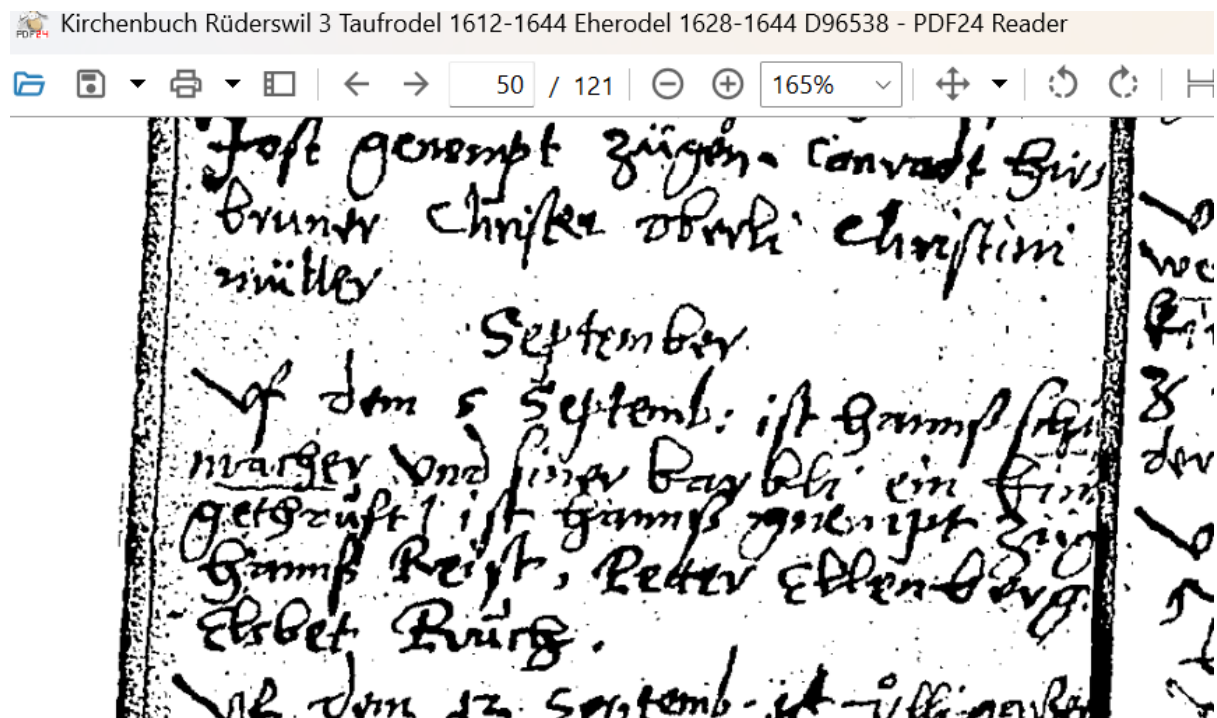 Kirchenbuch Rüderswil 3 Taufrodel 1612-1644 Eherodel 1628-1644 D96538 - PDF24 Reader
50 / 121 165%
Jost genempt Zügen. Conradt Hirs
bruner Christen oberli Christini
müller
September
Vf dem 5 Septemb: ist Hannß schu
macher Vnd siner barbli ein kin
gethaufft ist Hannß gnempt Züg
Hannß Reist, Peter Ellenberg.
Elsbet
Vf dem 12 Septemb. ist